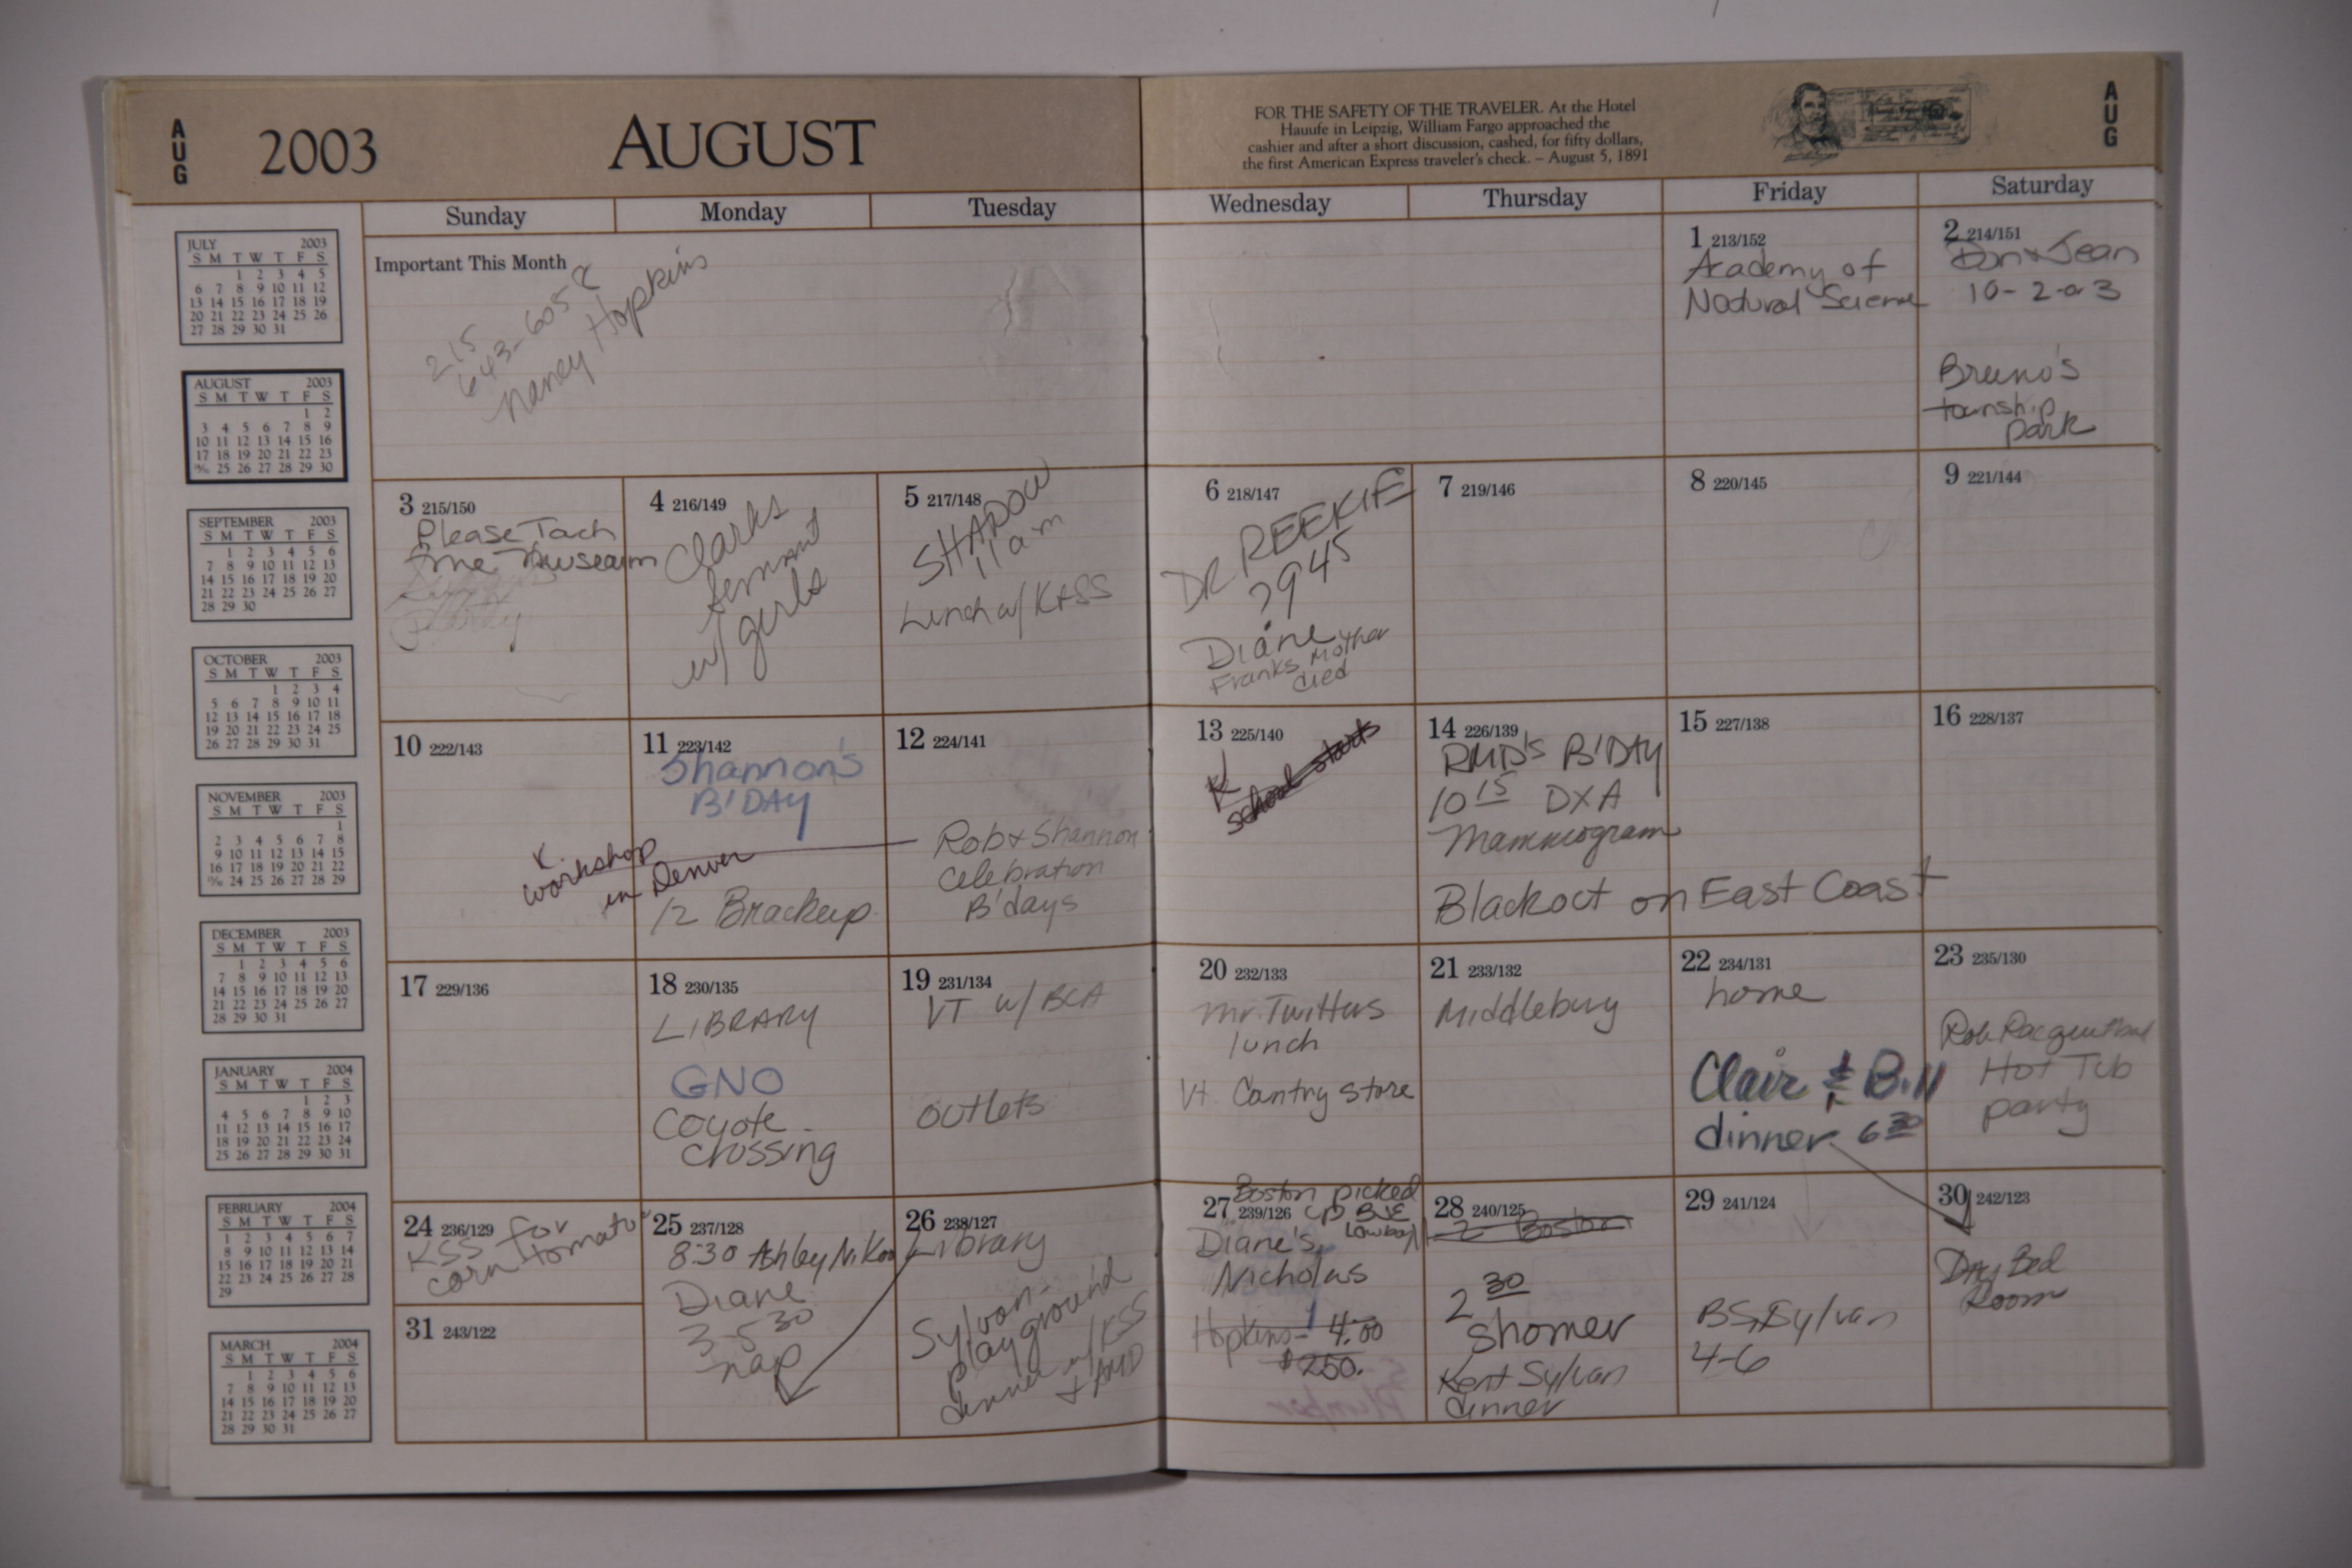 AUG
2003
AUGUST
FOR THE SAFETY OF THE TRAVELER. At the Hotel
Hauufe in Leipzig, William Fargo approached the
cashier and after a short discussion, cashed, for fifty dollars,
the first American Express traveler's check. – August 5, 1891
AUG
Sunday Monday Tuesday Wednesday Thursday Friday Saturday
JULY 2003
S M T W T F S
1 2 3 4 5
6 7 8 9 10 11 12
13 14 15 16 17 18 19
20 21 22 23 24 25 26
27 28 29 30 31
AUGUST 2003
S M T W T F S
1 2
3 4 5 6 7 8 9
10 11 12 13 14 15 16
17 18 19 20 21 22 23
25 26 27 28 29 30
SEPTEMBER 2003
S M T W T F S
1 2 3 4 5 6
7 8 9 10 11 12 13
14 15 16 17 18 19 20
21 22 23 24 25 26 27
28 29 30
OCTOBER 2003
S M T W T F S
1 2 3 4
5 6 7 8 9 10 11
12 13 14 15 16 17 18
19 20 21 22 23 24 25
26 27 28 29 30 31
NOVEMBER 2003
S M T W T F S
1
2 3 4 5 6 7 8
9 10 11 12 13 14 15
16 17 18 19 20 21 22
24 25 26 27 28 29
DECEMBER 2003
S M T W T F S
1 2 3 4 5 6
7 8 9 10 11 12 13
14 15 16 17 18 19 20
21 22 23 24 25 26 27
28 29 30 31
JANUARY 2004
S M T W T F S
1 2 3
4 5 6 7 8 9 10
11 12 13 14 15 16 17
18 19 20 21 22 23 24
25 26 27 28 29 30 31
FEBRUARY 2004
S M T W T F S
1 2 3 4 5 6 7
8 9 10 11 12 13 14
15 16 17 18 19 20 21
22 23 24 25 26 27 28
29
MARCH 2004
S M T W T F S
1 2 3 4 5 6
7 8 9 10 11 12 13
14 15 16 17 18 19 20
21 22 23 24 25 26 27
28 29 30 31
Important This Month
215
643-6052
Nancy Hopkins
1 213/152
Academy of
Natural Science
2 214/151
Don + Jean
10-2-03
Bruno's
township
park
3 215/150
Please Tach
me Museum
Party
4 216/149
Clarks
w/ girls
5 217/148
SHADOW
11 am
Lunch w/ KASS
6 218/147
DR REEKIE
945
Diane
Franks Mother
died
7 219/146
8 220/145
9 221/144
10 222/143
K
workshop
in Denver
11 223/142
Shannon's
B'DAY
12 Brackup
12 224/141
Rob + Shannon
Celebration
B'days
13 225/140
K
school starts
14 226/139
RMD's B'DAY
10 15 DXA
Mammogram
Blackout on East Coast
15 227/138
16 228/137
17 229/136
18 230/135
LIBRARY
GNO
Coyote
Crossing
19 231/134
VT w/ BCA
outlets
20 232/133
Mr. Twitters
lunch
Vt Cantry store
21 233/132
Middlebury
22 234/131
home
Clair & Bill
dinner 6 30
23 235/130
Rob Racquetball
Hot Tub
party
24 236/129
KSS for
corn + tomato
31 243/122
25 237/128
8:30 Ashley Nikon
Diane
3-5 30
nap
26 238/127
Library
Sylvan-
Playground
dinner w/ KSS
+ AMD
27 239/126
Boston picked
up BJE
Lowboy
Diane's
Nicholas
Hopkins - 4:00
$250.
28 240/125
2 - Boston
2 30
Shomer
Kent Sylvan
dinner
29 241/124
BS, Sylvan
4-6
30 242/123
Day Bed
Room